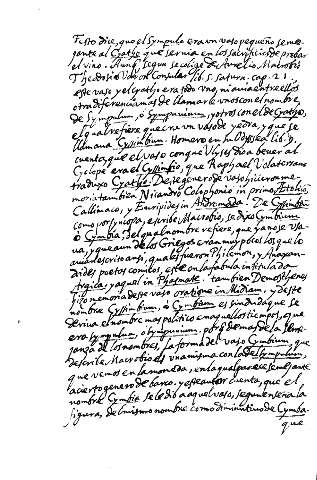 Festo dice, que el Sympulo era un vaso pequeño, seme-
jante al Cyatho que servia en los sacrificios de probar
el vino. Aunq. segun se colige de Aurelio Macrobio
Theodosio Varon Consular lib. 5 Saturn. cap. 21.
este vaso y el Cyatho era todo uno, ni avia entre ellos
otra diferencia mas de llamarse unos con el nombre
de Sympulum, ò Sympuvium, y otros con el de Cyatho,
el qual refiere que era un vaso de yedra, y que se
llamava Cyssimbium. Homero en la Odyssea lib. 9.
cuenta, que el vaso con que Ulyses dio a bever al
Cyclope era el Cyssimbio, que Raphael Volaterrano
traduxo Cyatho. De se genero de vaso hicieron me-
moria tambien Nicandro Colophonio in primo Aetolico,
Callimaco, y Euripides in Andromeda. De Cyssimbium
como por syncopa, escribe Macrobio, se dixo Cymbium
ò Cymbia, del qual nombre refiere, que ya no se usa-
va, y que aun de los Griegos eran muy pocos los que lo
avian escrito assi, quales fueron Philemon, y Anaxan-
drides poetas comicos, este en la fabula intitulada
Argica, y aquel in Phasmate. tambien Demosthenes
hizo memoria deste vaso oratione in Midiam, y deste
nombre Cyssimbium, ò Cymbium es sin duda que se
deriva el nombre mas politico en aquellos tiempos, que
era Sympulum, o Sympuvium. porq. demas de la seme-
janza de los nombres, la forma del vaso Cymbium, que
describe Macrobio es una misma con la del Sympulum,
que vemos en la moneda, en la qual parece semejante
a cierto genero de barco. y este autor cuenta, que el
nombre Cymbia se le dio a aquel vaso, segun enseña la
figura, del mismo nombre como diminutivo de Cymba.
que